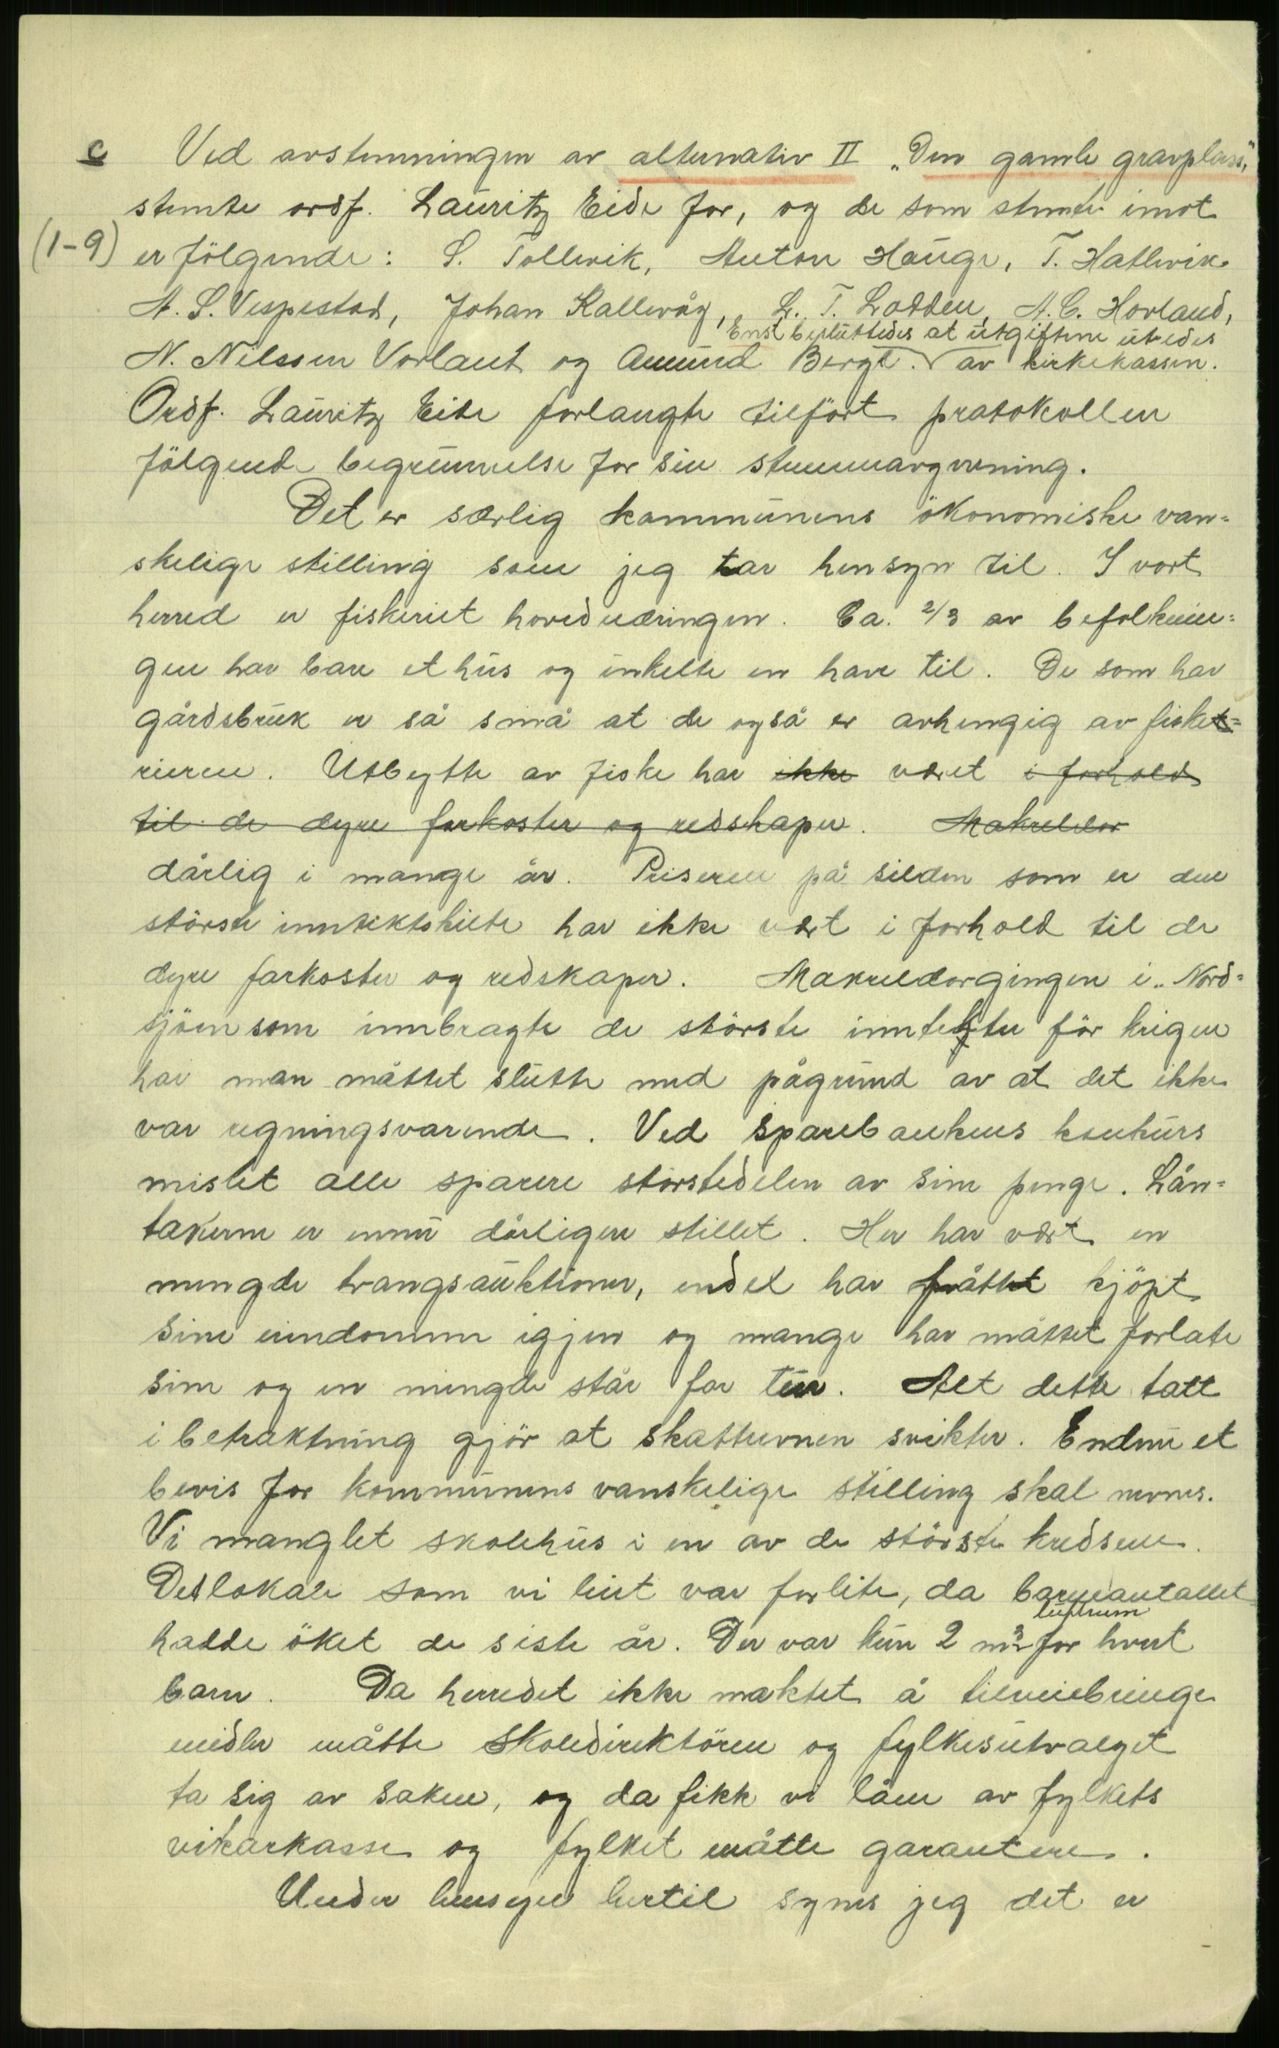 c Ved avstemningen av alternativ II "Den gamle gravplass"
stemte ordf. Lauritz Eide for, og de som stemte imot
(1-9) er fölgende: S. Tollevik, Anton Hauge, T. Hatlevik
A. S. Vespestad, Johan Kallevåg, L. T. Lodden, A. C. Hovland,
Enst besluttedes at utgiftene utredes
N. Nilssen Vorland og Amund Berge. av kirkekassen.
Ordf. Lauritz Eide forlangte tilfört protokollen
fölgende begrunnelse for sin stemmeavgivning.
Det er særlig kommunens ökonomiske van-
skelige stilling som jeg tar hensyn til. I vort
herred er fiskeriet hovednæringen. Ca. 2/3 av befolknin-
gen har bare et hus og enkelte en have til. De som har
gårdsbruk er så små at de også er avhengig av fiske-
rierne. Utbytte av fiske har ikke været i forhold
til de dyre farkoster og redskaper. Makreldor
dårlig i mange år. Prisene på silden som er den
störste inntektskilde har ikke vært i forhold til de
dyre farkoster og redskaper. Makreldorgingen i "Nord-
sjöen som innbragte de störste inntekter för krigen
har man måttet slutte med pågrund av at det ikke
var regningsvarende. Ved Sparebankens konkurs
mistet alle sparere störstedelen av sine penge. Lån-
takerne er ennu dårligere stillet. Her har vært en
mengde tvangsauktioner, endel har fått kjöpt
sine eiendomme igjen og mange har måttet forlate
sine og en mengde står for tur. Alt dette tatt
i betraktning gjör at skatteevnen svikter. Endnu et
bevis for kommunens vanskelige stilling skal nevnes.
Vi manglet skolehus i en av de störste kredsene.
Det lokale som vi leiet var for lite, da barneantallet
luftrum
hadde öket de siste år. Der var kun 2 m3 for hvert
barn. Da herredet ikke maktet å tilveiebringe
midler måtte Skoledirektören og fylkesutvalget
ta sig av saken, og da fikk vi lån av fylkets
vikarkasse og fylket måtte garantere.
Under hensyn hertil synes jeg det er